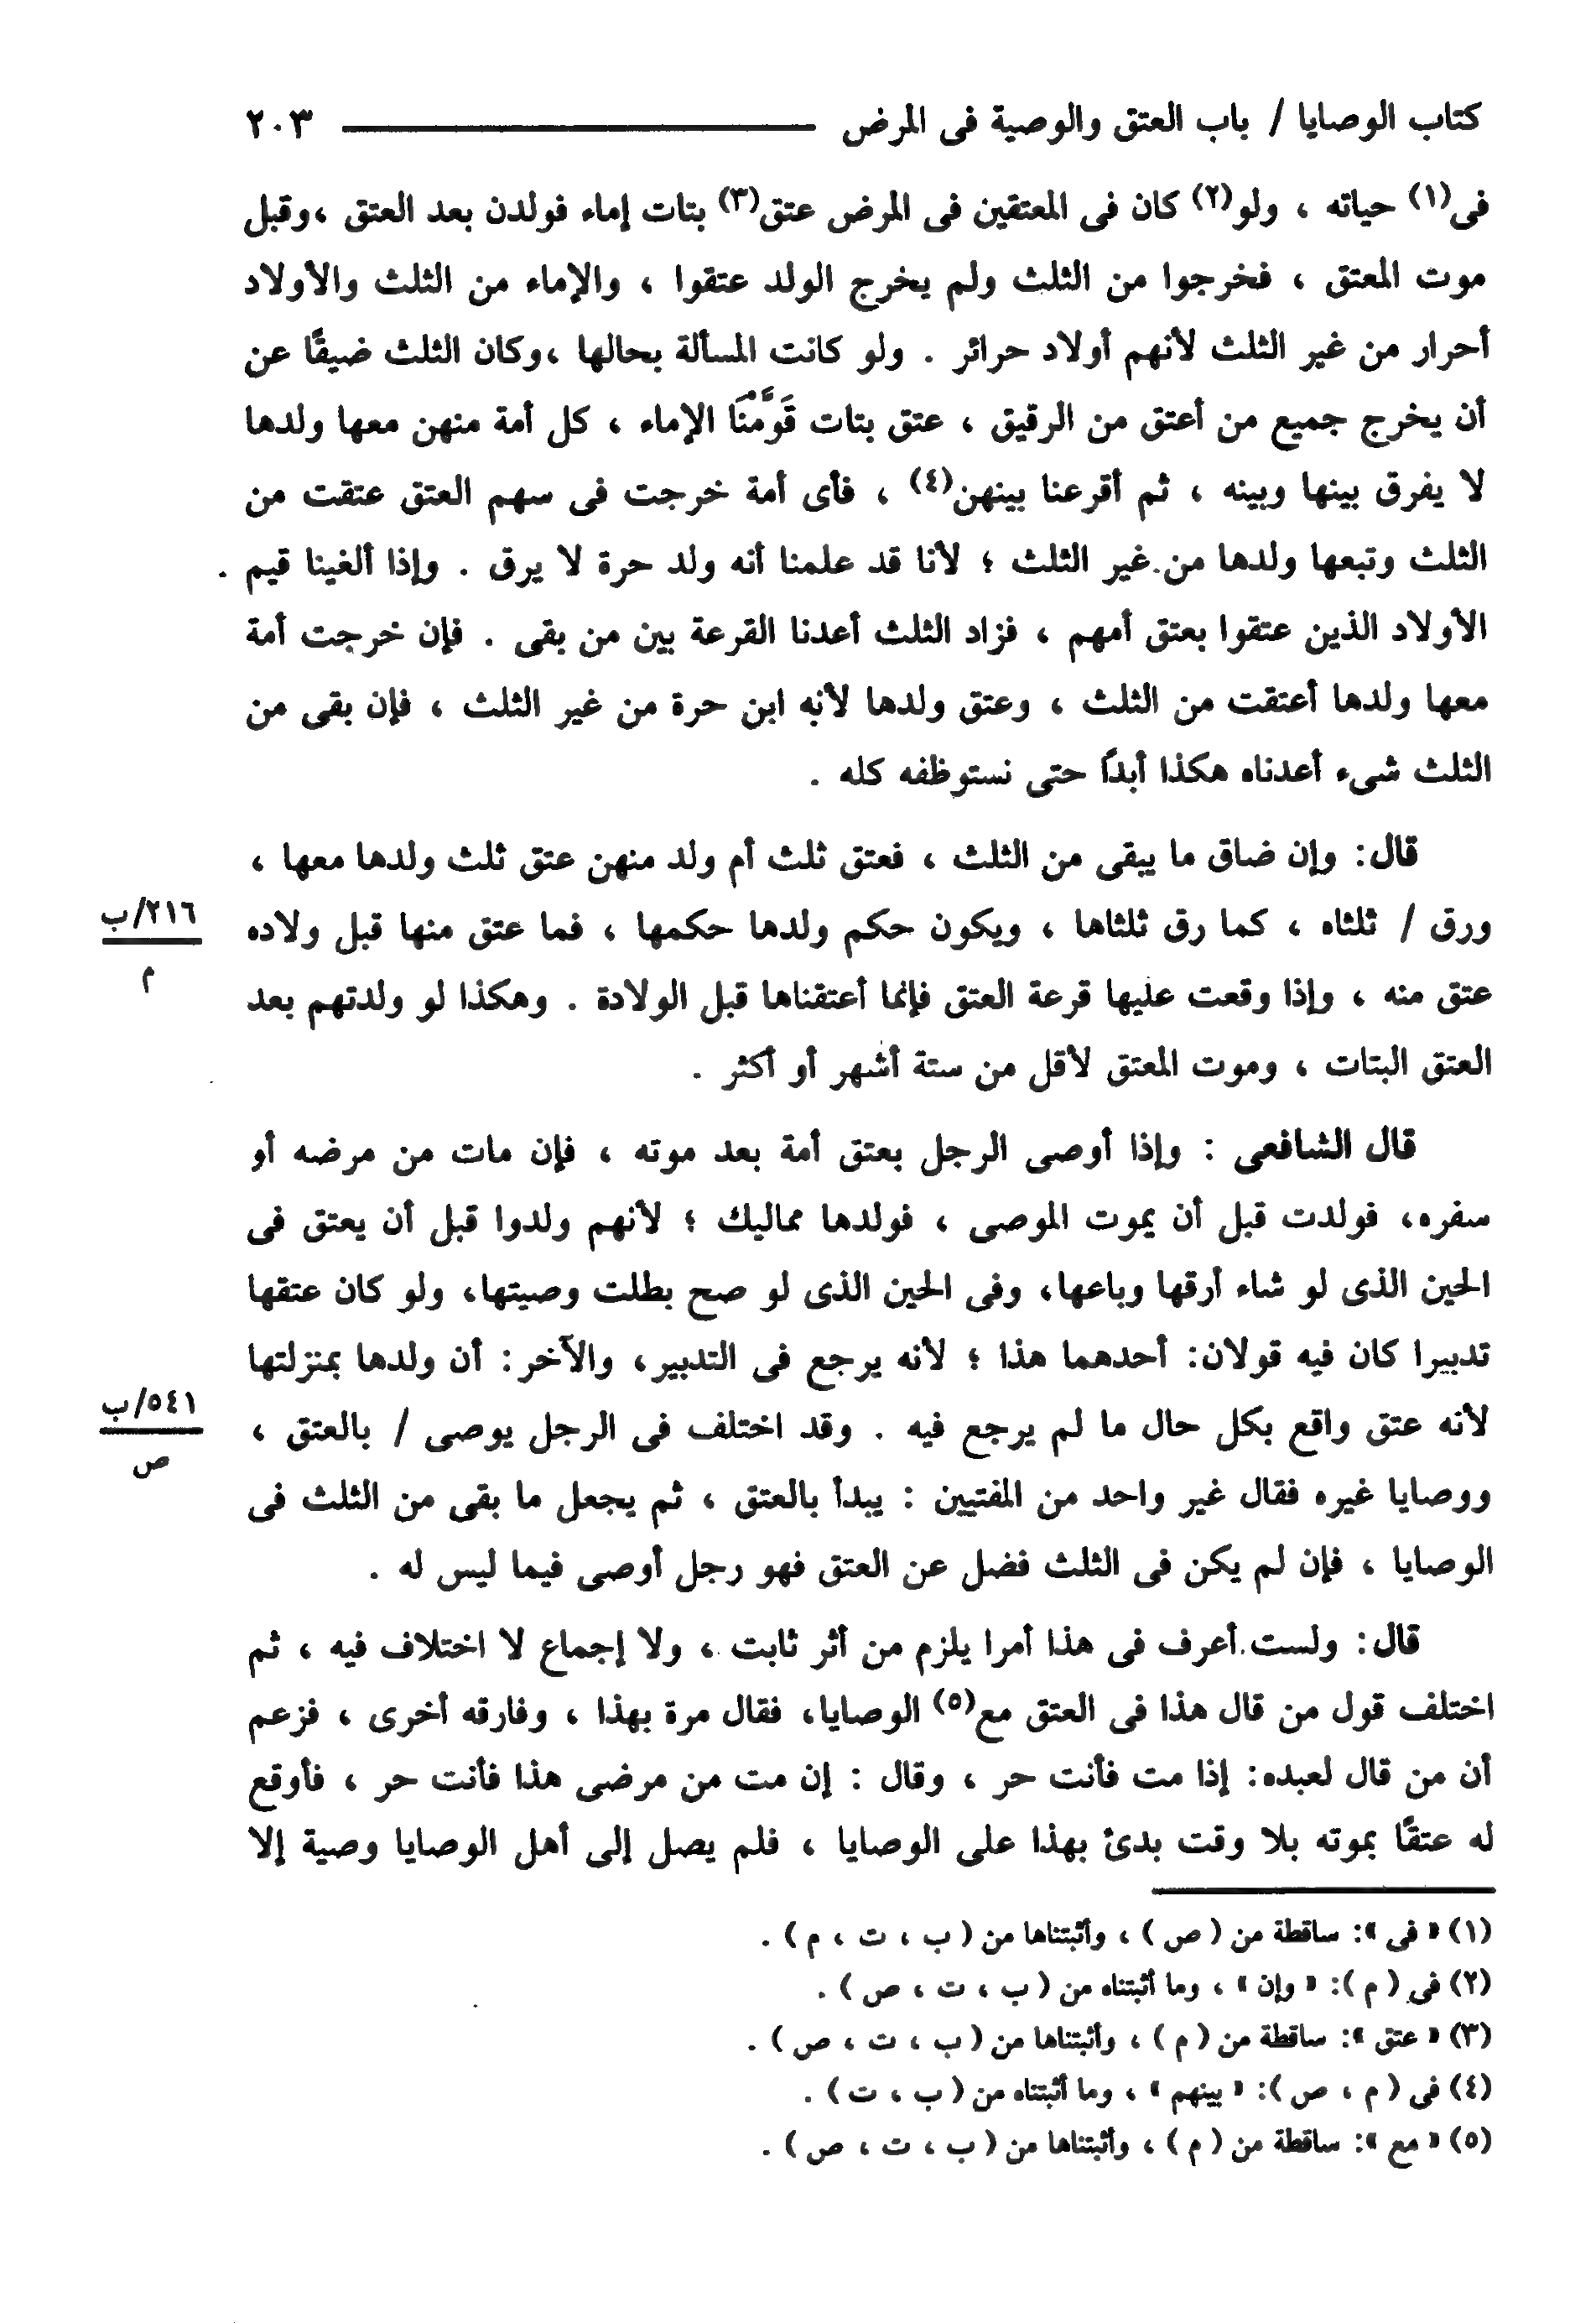 كتاب الوصايا / باب العتق والوصية فى المرض ــــــــــــــــ ٢٠٣
فى(١) حياته ، ولو(٢) كان فى المعتقين فى المرض عتق(٣) بتات إماء فولدن بعد العتق ،وقبل
موت المعتق ، فخرجوا من الثلث ولم يخرج الولد عتقوا ، والإماء من الثلث والأولاد
أحرار من غير الثلث لأنهم أولاد حرائر . ولو كانت المسألة بحالها ،وكان الثلث ضيقًا عن
أن يخرج جميع من أعتق من الرقيق ، عتق بتات قَوَّمْنَا الإماء ، كل أمة منهن معها ولدها
لا يفرق بينها وبينه ، ثم أقرعنا بينهن(٤) ، فأى أمة خرجت فى سهم العتق عتقت من
الثلث وتبعها ولدها من غير الثلث ؛ لأنا قد علمنا أنه ولد حرة لا يرق . وإذا ألغينا قيم
الأولاد الذين عتقوا بعتق أمهم ، فزاد الثلث أعدنا القرعة بين من بقى . فإن خرجت أمة
معها ولدها أعتقت من الثلث ، وعتق ولدها لأنه ابن حرة من غير الثلث ، فإن بقى من
الثلث شىء أعدناه هكذا أبدًا حتى نستوظفه كله .
قال: وإن ضاق ما يبقى من الثلث ، فعتق ثلث أم ولد منهن عتق ثلث ولدها معها ،
ورق / ثلثاه ، كما رق ثلثاها ، ويكون حكم ولدها حكمها ، فما عتق منها قبل ولاده
٢١٦/ب
م
عتق منه ، وإذا وقعت عليها قرعة العتق فإنما أعتقناها قبل الولادة . وهكذا لو ولدتهم بعد
العتق البتات ، وموت المعتق لأقل من ستة أشهر أو أكثر .
قال الشافعى : وإذا أوصى الرجل بعتق أمة بعد موته ، فإن مات من مرضه أو
سفره، فولدت قبل أن يموت الموصى ، فولدها مماليك ؛ لأنهم ولدوا قبل أن يعتق فى
الحين الذى لو شاء أرقها وباعها، وفى الحين الذى لو صح بطلت وصيتها، ولو كان عتقها
تدبيرا كان فيه قولان: أحدهما هذا ؛ لأنه يرجع فى التدبير، والآخر: أن ولدها بمنزلتها
لأنه عتق واقع بكل حال ما لم يرجع فيه . وقد اختلف فى الرجل يوصى / بالعتق ،
٥٤١/ب
ص
ووصايا غيره فقال غير واحد من المفتيين : يبدأ بالعتق ، ثم يجعل ما بقى من الثلث فى
الوصايا ، فإن لم يكن فى الثلث فضل عن العتق فهو رجل أوصى فيما ليس له .
قال: ولست أعرف فى هذا أمرا يلزم من أثر ثابت ، ولا إجماع لا اختلاف فيه ، ثم
اختلف قول من قال هذا فى العتق مع(٥) الوصايا، فقال مرة بهذا ، وفارقه أخرى ، فزعم
أن من قال لعبده: إذا مت فأنت حر ، وقال : إن مت من مرضى هذا فأنت حر ، فأوقع
له عتقًا بموته بلا وقت بدئ بهذا على الوصايا ، فلم يصل إلى أهل الوصايا وصية إلا
(١) « فى »: ساقطة من ( ص ) ، وأثبتناها من ( ب ، ت ، م ) .
(٢) فى ( م ): « وإن » ، وما أثبتناه من ( ب ، ت ، ص ) .
(٣) « عتق »: ساقطة من ( م ) ، وأثبتناها من ( ب ، ت ، ص ) .
(٤) فى ( م ، ص ): « بينهم » ، وما أثبتناه من ( ب ، ت ) .
(٥) « مع »: ساقطة من ( م ) ، وأثبتناها من ( ب ، ت ، ص ) .